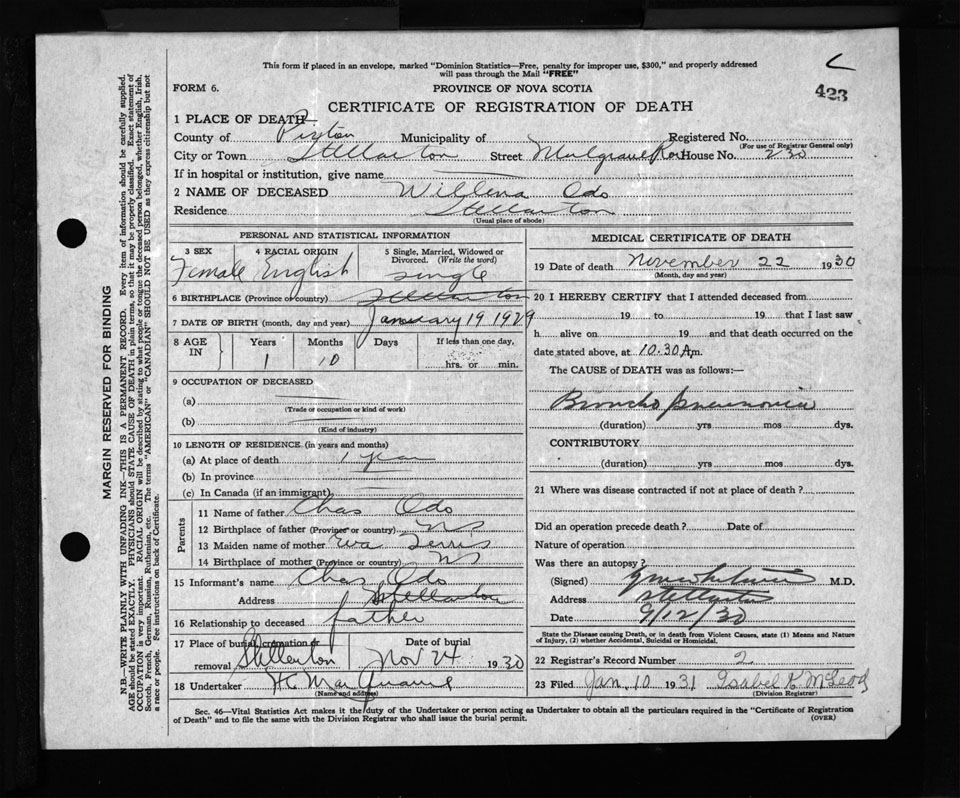 This form if placed in an envelope, marked "Dominion Statistics—Free, penalty for improper use, $300," and properly addressed
will pass through the Mail "FREE"
423
FORM 6.
PROVINCE OF NOVA SCOTIA
CERTIFICATE OF REGISTRATION OF DEATH
1 PLACE OF DEATH
County of Pictou Municipality of Registered No.
(For use of Registrar General only)
City or Town Stellarton Street Mulgrave Row House No. 230
If in hospital or institution, give name
2 NAME OF DECEASED Willena Odo
Residence Stellarton
(Usual place of abode)
PERSONAL AND STATISTICAL INFORMATION
3 SEX 4 RACIAL ORIGIN 5 Single, Married, Widowed or
Divorced. (Write the word)
Female English single
6 BIRTHPLACE (Province or country) Stellarton
7 DATE OF BIRTH (month, day and year) January 19 1929
8 AGE IN Years Months Days If less than one day,
1 10 hrs. or min.
9 OCCUPATION OF DECEASED
(a)
(Trade or occupation or kind of work)
(b)
(Kind of industry)
10 LENGTH OF RESIDENCE (in years and months)
(a) At place of death 1 year
(b) In province
(c) In Canada (if an immigrant)
Parents
11 Name of father Chas Odo
12 Birthplace of father (Province or country) NS
13 Maiden name of mother Eva Terris
14 Birthplace of mother (Province or country) NS
15 Informant's name Chas Odo
Address Stellarton
16 Relationship to deceased father
17 Place of burial, cremation or Date of burial
removal Stellarton Nov 24 1930
18 Undertaker
(Name and address)
MEDICAL CERTIFICATE OF DEATH
19 Date of death November 22 1930
(Month, day and year)
20 I HEREBY CERTIFY that I attended deceased from
19 to 19 that I last saw
h alive on 19 and that death occurred on the
date stated above, at 10.30 A.m.
The CAUSE of DEATH was as follows:—
Broncho pneumonia
(duration) yrs mos dys.
CONTRIBUTORY
(duration) yrs mos dys.
21 Where was disease contracted if not at place of death?
Did an operation precede death? Date of
Nature of operation
Was there an autopsy?
(Signed) M.D.
Address Stellarton
Date 9/12/30
State the Disease causing Death, or in death from Violent Causes, state (1) Means and Nature
of Injury, (2) whether Accidental, Suicidal or Homicidal.
22 Registrar's Record Number 2
23 Filed Jan. 10 1931 Isabel K McLeod
(Division Registrar)
Sec. 46—Vital Statistics Act makes it the duty of the Undertaker or person acting as Undertaker to obtain all the particulars required in the "Certificate of Registration
of Death" and to file the same with the Division Registrar who shall issue the burial permit.
(OVER)
MARGIN RESERVED FOR BINDING
N.B.—WRITE PLAINLY WITH UNFADING INK—THIS IS A PERMANENT RECORD. Every item of information should be carefully supplied.
AGE should be stated EXACTLY. PHYSICIANS should STATE CAUSE OF DEATH in plain terms, so that it may be properly classified. Exact statement of
OCCUPATION is very important. RACIAL ORIGIN will be described by stating to what people or tongue the deceased person belonged, whether English, Irish,
Scotch, French, German, Russian, Ruthenian, etc. The terms "AMERICAN" or "CANADIAN" SHOULD NOT BE USED as they express citizenship but not
a race or people. See instructions on back of Certificate.